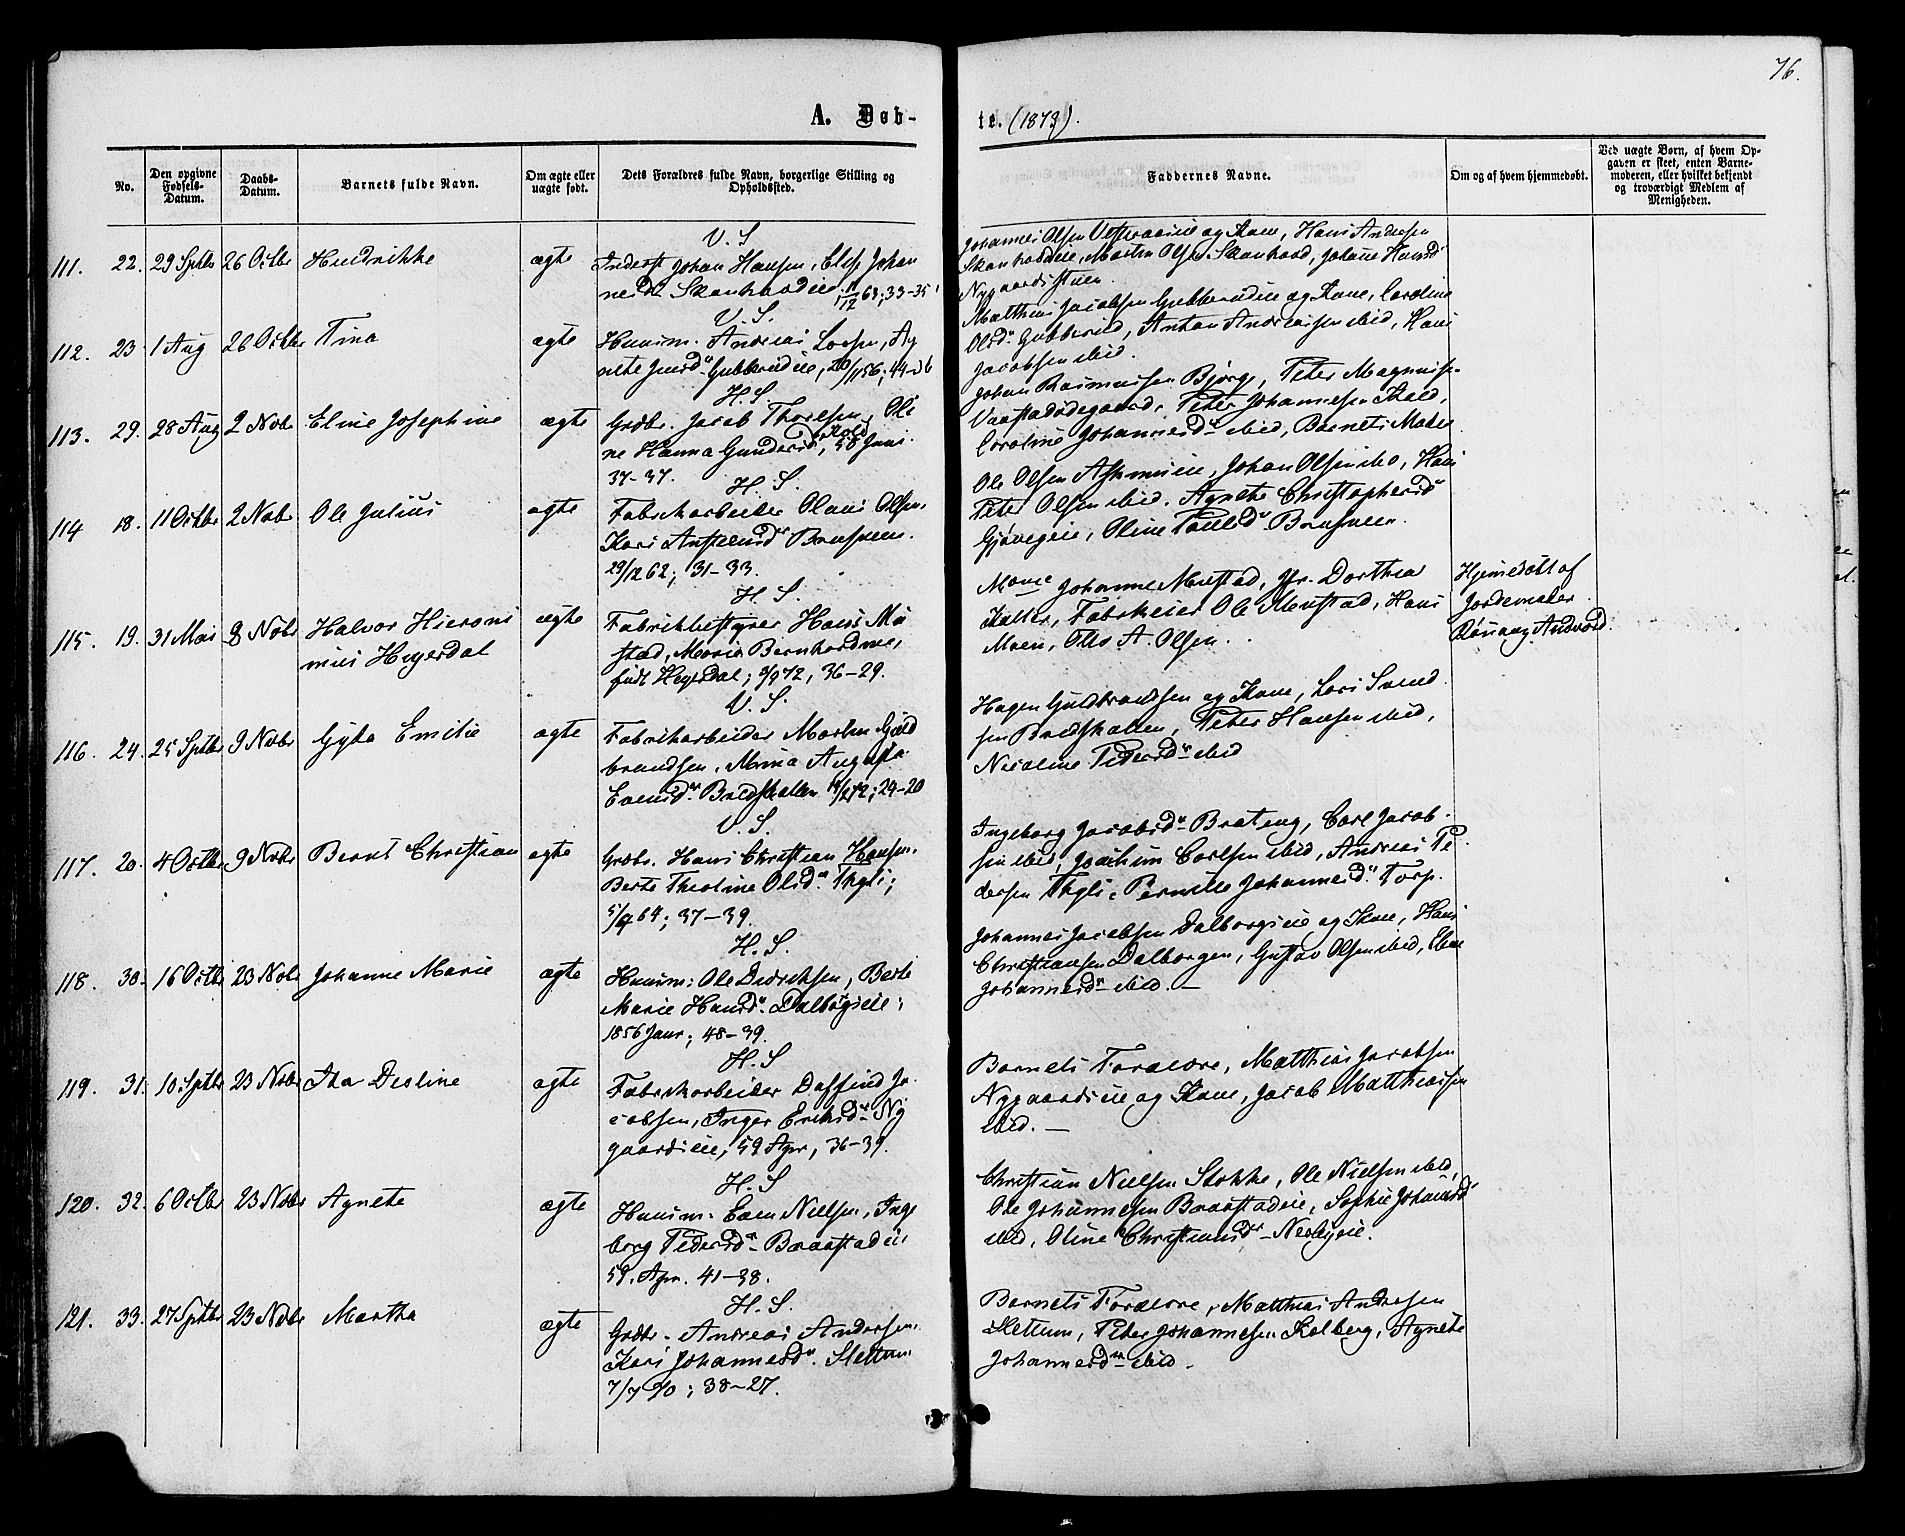 76.
A. Døb-
te. (1873).
No.
Den opgivne Fødsels-Datum.
Daabs-Datum.
Barnets fulde Navn.
Om ægte eller uægte født.
Dets Forældres fulde Navn, borgerlige Stilling og Opholdssted.
Faddernes Navne.
Om og af hvem hjemmedøbt.
Ved uægte Børn, af hvem Opgaven er skeet, enten Barnemoderen, eller hvilket bekjendt og troværdigt Medlem af Menigheden.
V. S
111. 22. 29 Sptbr 26 Octbr Hendrikke ægte
Inderst Johan Hansen, Else Johan
nesd. 11/12 63; 33-35
Johannes Olsen og Kone, Hans Andersen
Martin Olsen Johane Hansd
V. S.
112. 23 1 Aug 26 Octbr Tina ægte
Huusm. Andreas Ag
nete Gubberudeie, 44-36
Matthias Jacobsen Gubberudeie og Kone, Caroline
Olsd. Gubberud, Anton Andreassen ibid, Hans
Jacobsen ibid.
H. S.
113. 29. 28 Aug 2 Nobr Eline Josephine ægte
Grdbr. Jacob Thorsen, Oli
ne Hanna Gundersd, 58 Juni
37-37.
Johan Rasmussen Bjørge, Peter
Peter Johannesen
Caroline Johannesd. ibid, Barnets Moder.
H. S.
114 18. 11 Octbr 2 Nobr Ole Julius ægte
Fabrikarbeider Olaus Olsen,
Kari Brusveen.
29/12 62; 31-33.
Ole Olsen Johan Olsen Hans
Peter Olsen ibid. Agnete Christophersd
Oline Brusveen.
H. S.
115. 19. 31 Mai 8 Nobr Halvor Hieroni
mus Heyerdal ægte
Fabrikbestyrer Hans Mu
stad, Marie Bernhardine,
født Heyerdal; 72, 36-29.
Johanne Mustad, Dorthea
Ole Mustad, Hans
Moen, Otto A. Olsen.
Hjemmedøbt af
Jordemoder
V. S.
116. 24. 25 Sptbr 9 Nobr Gyda Emilie ægte
Fabrikarbeider Martin Guld
brandsen, Mina Augusta
Evensd. 24-20
Hagen Guldbrandsen og Kone, Lars Svend
sen Peter Hansen ibid,
Nicoline Pedersd. ibid
V. S.
117. 20. 4 Octbr 9 Nobr Bernt Christian ægte
Grdbr. Hans Christian Hansen,
Berte Theoline Olsd. Thyli;
64; 37-39.
Ingeborg Jacobsd. Brateng, Carl Jacob
sen ibid, Joachim Carlsen ibid, Andreas Pe
dersen Thyli, Pernille Johannesd. Torp.
H. S.
118. 30. 16 Octbr 23 Nobr Johanne Marie ægte
Huusm: Ole Didriksen, Berte
Marie Hansd.
1856 Janr; 48-39.
Johannes Jacobsen Dalborgseie og Kone, Hans
Christiansen Dalborgen, Gustav Olsen ibid,
Johannesd. ibid.
H. S
119. 31. 10 Sptbr 23 Nobr ægte
Fabrikarbeider Daffind Ja
cobsen, Inger Eriksd. Ny
gaardseie, 59 Apr, 36-39.
Barnets Forældre, Matthias Jacobsen
Nygaardseie og Kone, Jacob Matthiassen
ibid.
H. S
120. 32. 6 Octbr 23 Nobr Agnete ægte
Huusm. Even Nielsen, Inge
borg Pedersd. Braastadeie
59. Apr. 41-38.
Christian Nielsen Stokke, Ole Nielsen ibid,
Ole Johannesen Braastadeie, Sophie Johannesd
ibid, Oline Christiansd.
H. S.
121. 33. 27 Sptbr 23 Nobr Martha ægte
Grdbr. Andreas Andersen,
Kari Johannesd. Slettum
7/7 70; 38-27.
Barnets Forældre, Matthias Andersen
Slettum, Peter Johannesen Kolberg, Agnete
Johannesd. ibid.